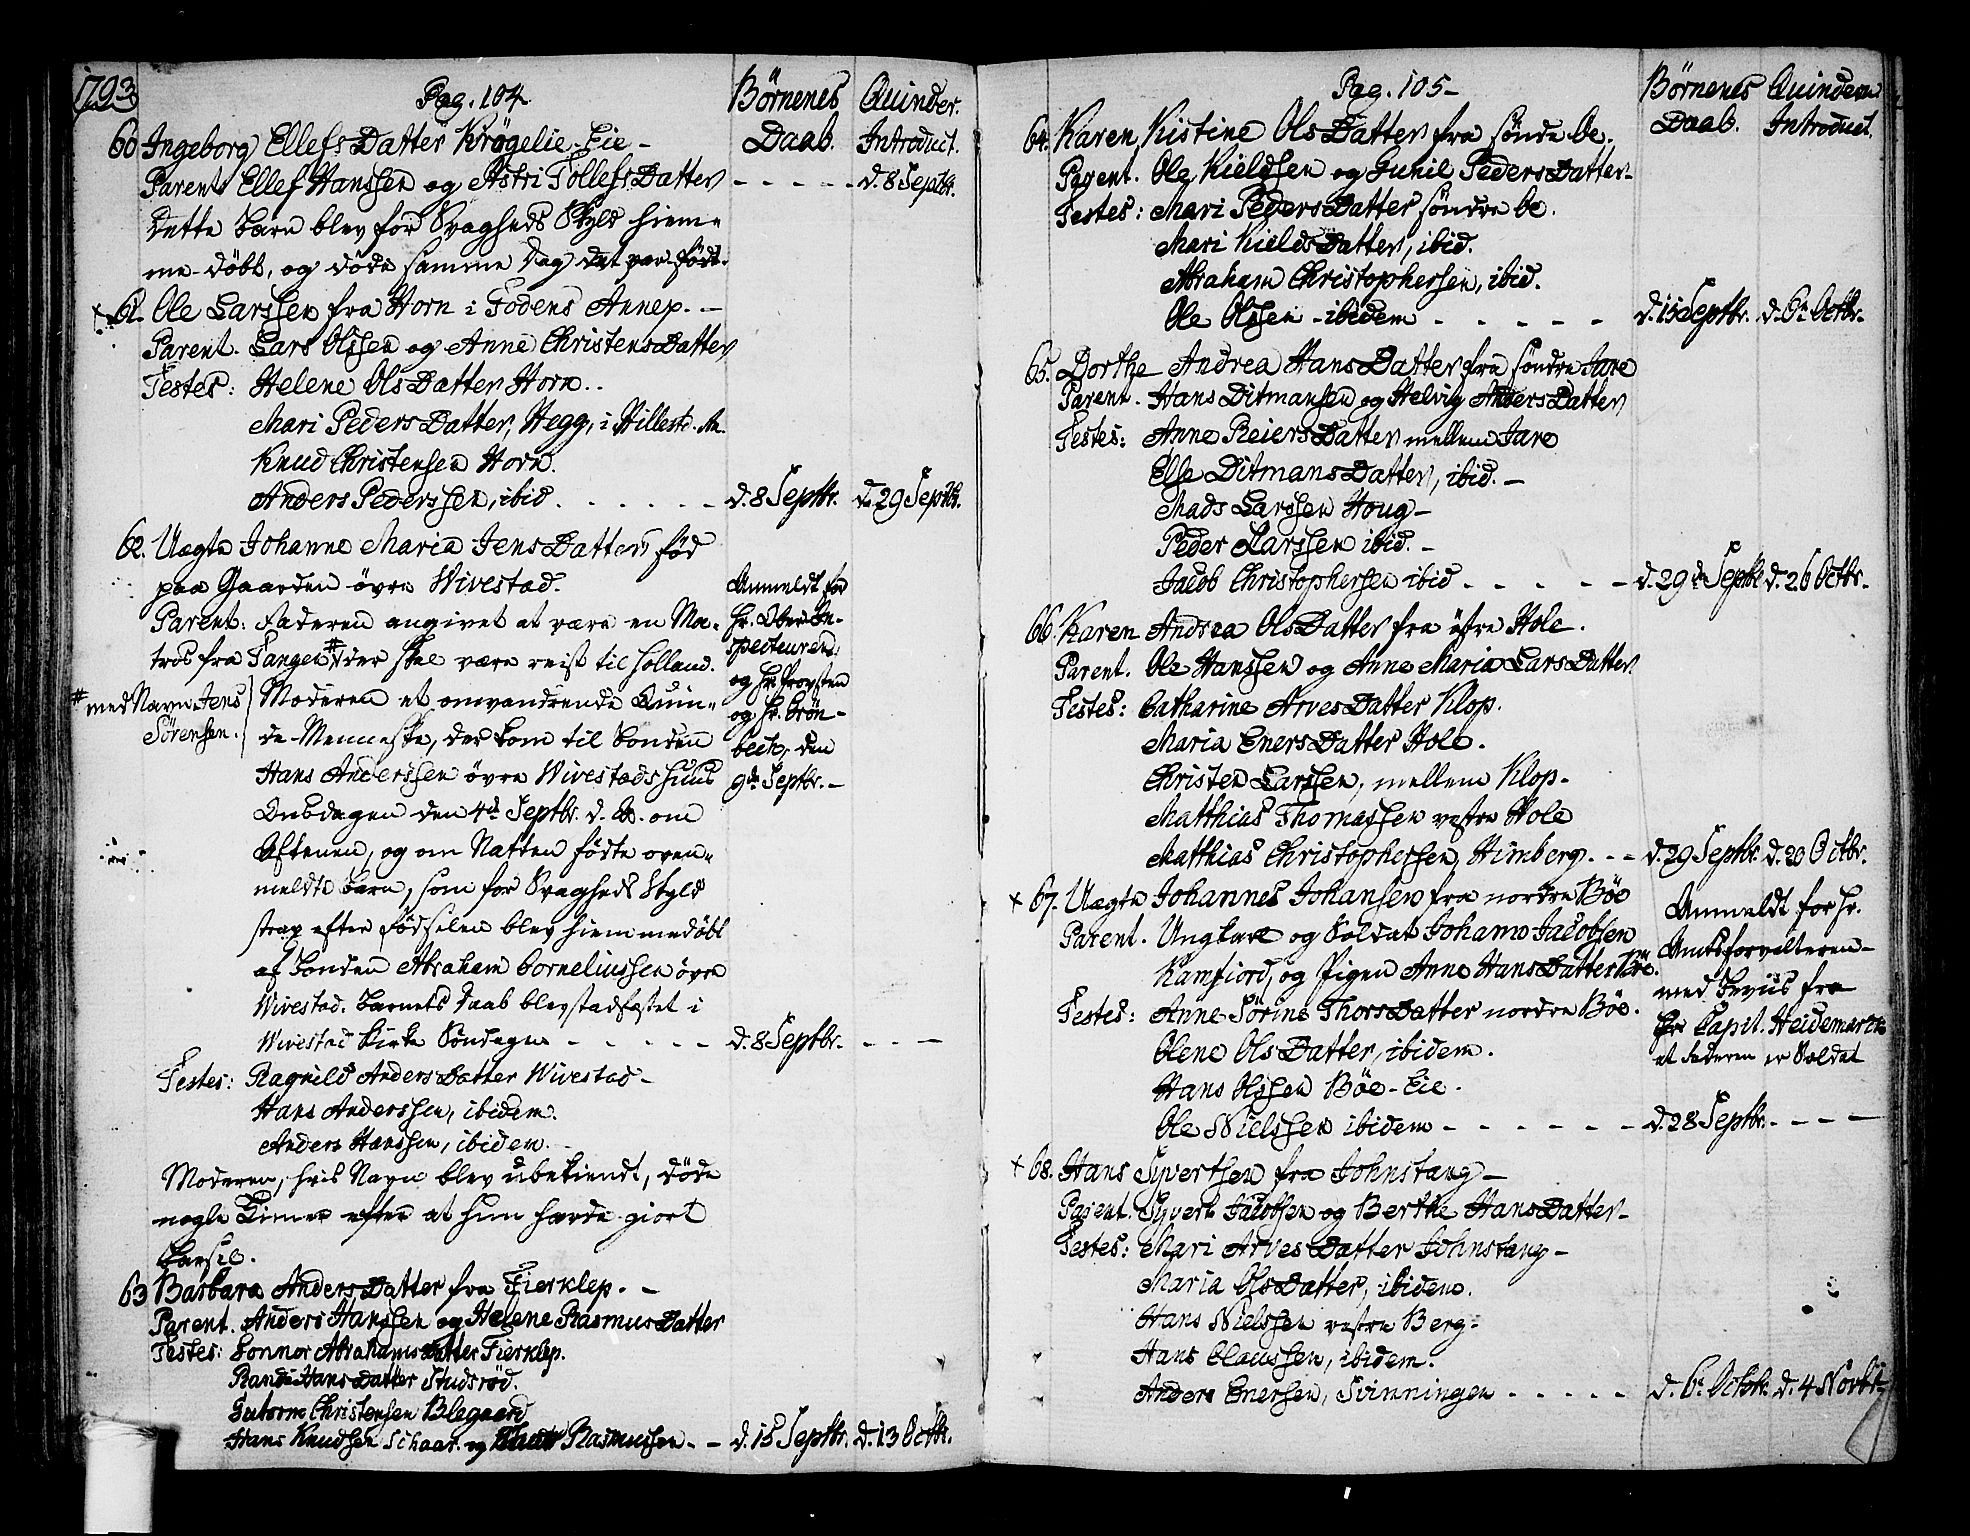 1793
Pag. 104.
Börnenes Daab.
Quinder. Introduct.
60 Ingeborg EllefsDatter Krøgelie-Eie -
Parent. Ellef Hanssen og Astri TollefsDatter - - - - - d. 8 Septbr.
Dette Barn blev for Svagheds Skyld hiem-
me-döbt, og döde samme Dag det var født.
+ 61. Ole Larssen fra Horn i Fodens Annex. -
Parent. Lars Olssen og Anne ChristensDatter
Testes: Helene OlsDatter Horn.
Mari PedersDatter, Hegg, i Hillest. An.
Knud Christensen Horn.
Anders Pederssen, ibid. - - - - - d. 8 Septbr. d. 29 Septbr.
62. Uægte Johanne Maria JensDatter född
paa Gaarden övre Wivestad.
Parent: Faderen angivet at være en Ma-
tros fra Tangen # der skal være reist til Holland.
# med Navn Jens
Sörensen.
Moderen et omvandrende Quin-
de-Menneske, der kom til Bonden
Hans Anderssen övre Wivestads Huus
Onsdagen den 4de Septbr. d. A. om
Aftenen, og om Natten födte oven-
meldte Barn, som for Svagheds Skyld
strax efter Födselen blev hiemmedöbt
af Bonden Abraham Corneliussen övre
Wivestad. Barnets Daab blev stadfæstet i
Wivestad Kirke Söndagen - - - - - d. 8 Septbr. - - -
Anmeldt for
Hr. Ober In-
specteuren:
og Hr. Provsten
og Hr. Brön-
bech, den
9de Septbr. -
Testes: Ragnild AndersDatter Wivestad -
Hans Anderssen, ibidem.
Anders Hanssen, ibidem. -
Moderen, hvis Navn blev ubekiendt, döde
nogle Timer efter at hun havde giort
Barsel.
63 Barbara AndersDatter fra Fierklep. -
Parent. Anders Hanssen og Helene RasmusDatter
Testes: Gonnor AbrahamsDatter Fierklep.
Randi HansDatter Studsröd.
Gutorm Christensen Blegaard
Hans Knudsen Schaar. og Rasmussen - - d. 15 Septbr. d. 13 Octbr.
Pag. 105 -
Börnenes Daab.
Quindern Introduct.
64. Karen Kistine OlsDatter fra sönde Be.
Parent. Ole Kieldsen og Gunil PedersDatter -
Testes: Mari PedersDatter söndre be.
Mari KieldsDatter, ibid.
Abraham Christophersen, ibid.
Ole Olssen - ibidem - - - - - d. 15 Septbr. d. 6te Octbr.
65. Dorthe Andrea HansDatter fra söndre Jare
Parent. Hans Ditmansen og Helvig AndersDatter
Testes: Anne ReiersDatter mellem Jare
Else DitmansDatter, ibid. -
Mads Larssen Houg -
Peder Larssen ibid. -
Jacob Christophersen ibid - - - - - d. 29de Septbr d. 26 Octbr.
66. Karen Andrea OlsDatter fra östre Hole.
Parent. Ole Hanssen og Anne Maria LarsDatter
Testes: Catharine ArvesDatter Klop.
Maria EnersDatter Hole.
Christen Larssen, mellem Klop.
Matthias Thomassen vestre Hole
Matthias Christophersen, Himberg. - - d. 29 Septbr. d. 20 Octbr.
+ 67. Uægte Johannes Johansen fra nordre Böe
Parent. Ungkarl og Soldat Johann Jacobsen
Kamfiord, og Pigen Anne HansDatter Böe.
Testes: Anne Sörine ThorsDatter nordre Böe.
Olene OlsDatter, ibidem.
Hans Olssen Böe-Eie.
Ole Nielssen ibidem - - - - - d. 28 Septbr. - - - -
Anmeldt for Hr.
Amtsforvalteren -
med Beviis fra
Hr Capit. Heidemark
at Faderen er Soldat
+ 68. Hans Syvertsen fra Johnstang -
Parent. Syvert Jacobsen og Berthe HansDatter -
Testes: Mari ArvesDatter Johnstang -
Maria OlsDatter, ibidem.
Hans Nielssen vestre Berg -
Hans Claussen, ibidem.
Anders Enersen, Svinningen - - - - - d. 6te Octbr. d. 4 Novbr.